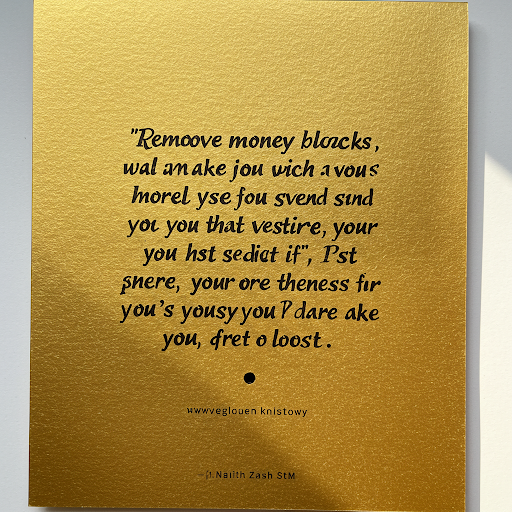 "Remoove money blozcks,
wal am ake jou wich a vous
horel yse fou svend sınd
you you that vestire, your
you hst sediat if", Pst
your ore theness fır
you's yousy you P dare ake
you, dret o loost.
uwwveglouen knistowy
Naiith Zash StM